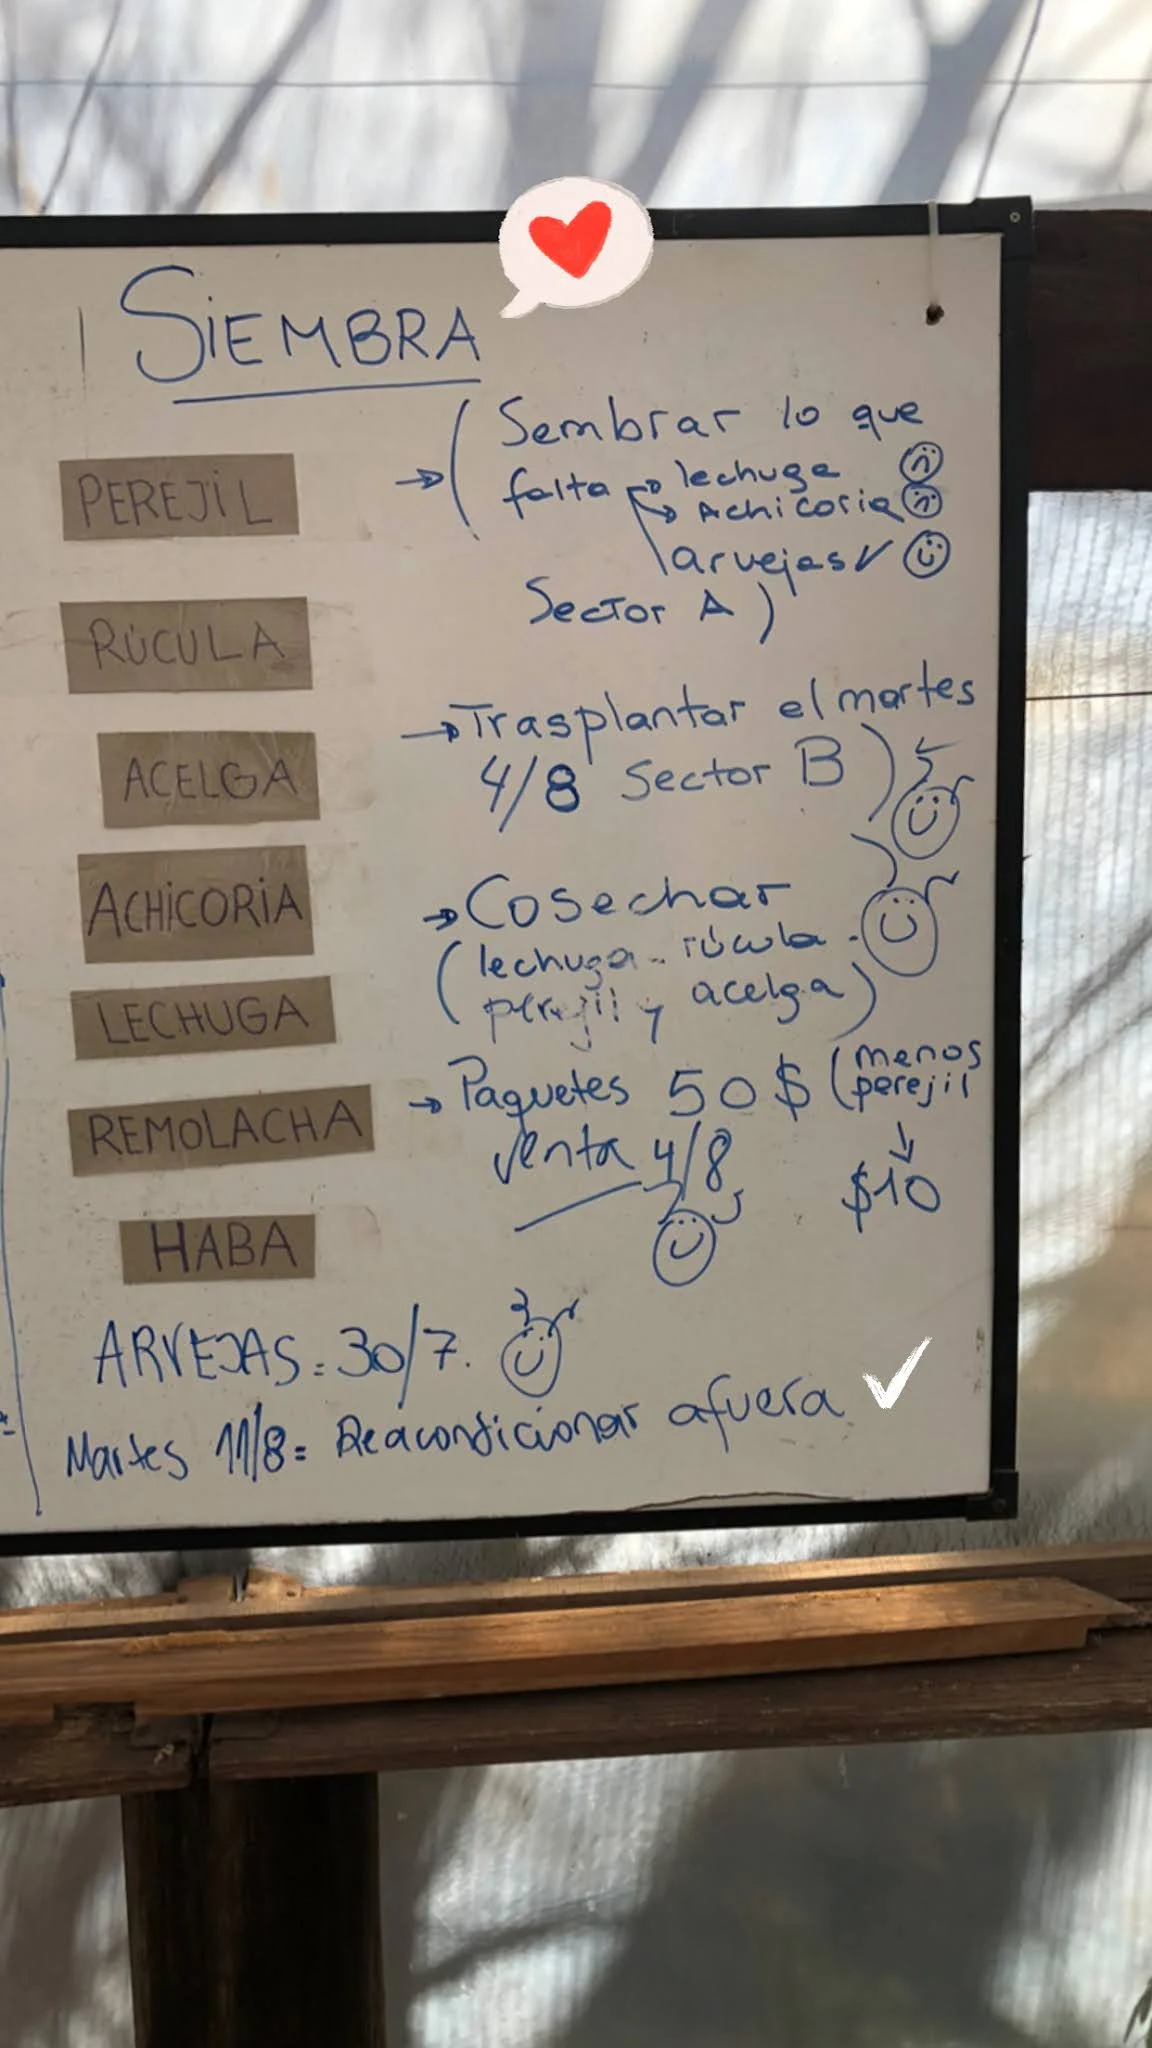 SIEMBRA
PEREJIL
RÚCULA
ACELGA
ACHICORIA
LECHUGA
REMOLACHA
HABA
→ ( Sembrar lo que
falta → lechuga
→ Achicoria
arvejas ✓
Sector A )
→ Trasplantar el martes
4/8 Sector B )
→ Cosechar
( lechuga - rúcula -
perejil y acelga )
→ Paquetes 50 $ ( menos
perejil
↓
$10
venta 4/8
ARVEJAS = 30/7.
Martes 11/8 = Reacondicionar afuera ✓